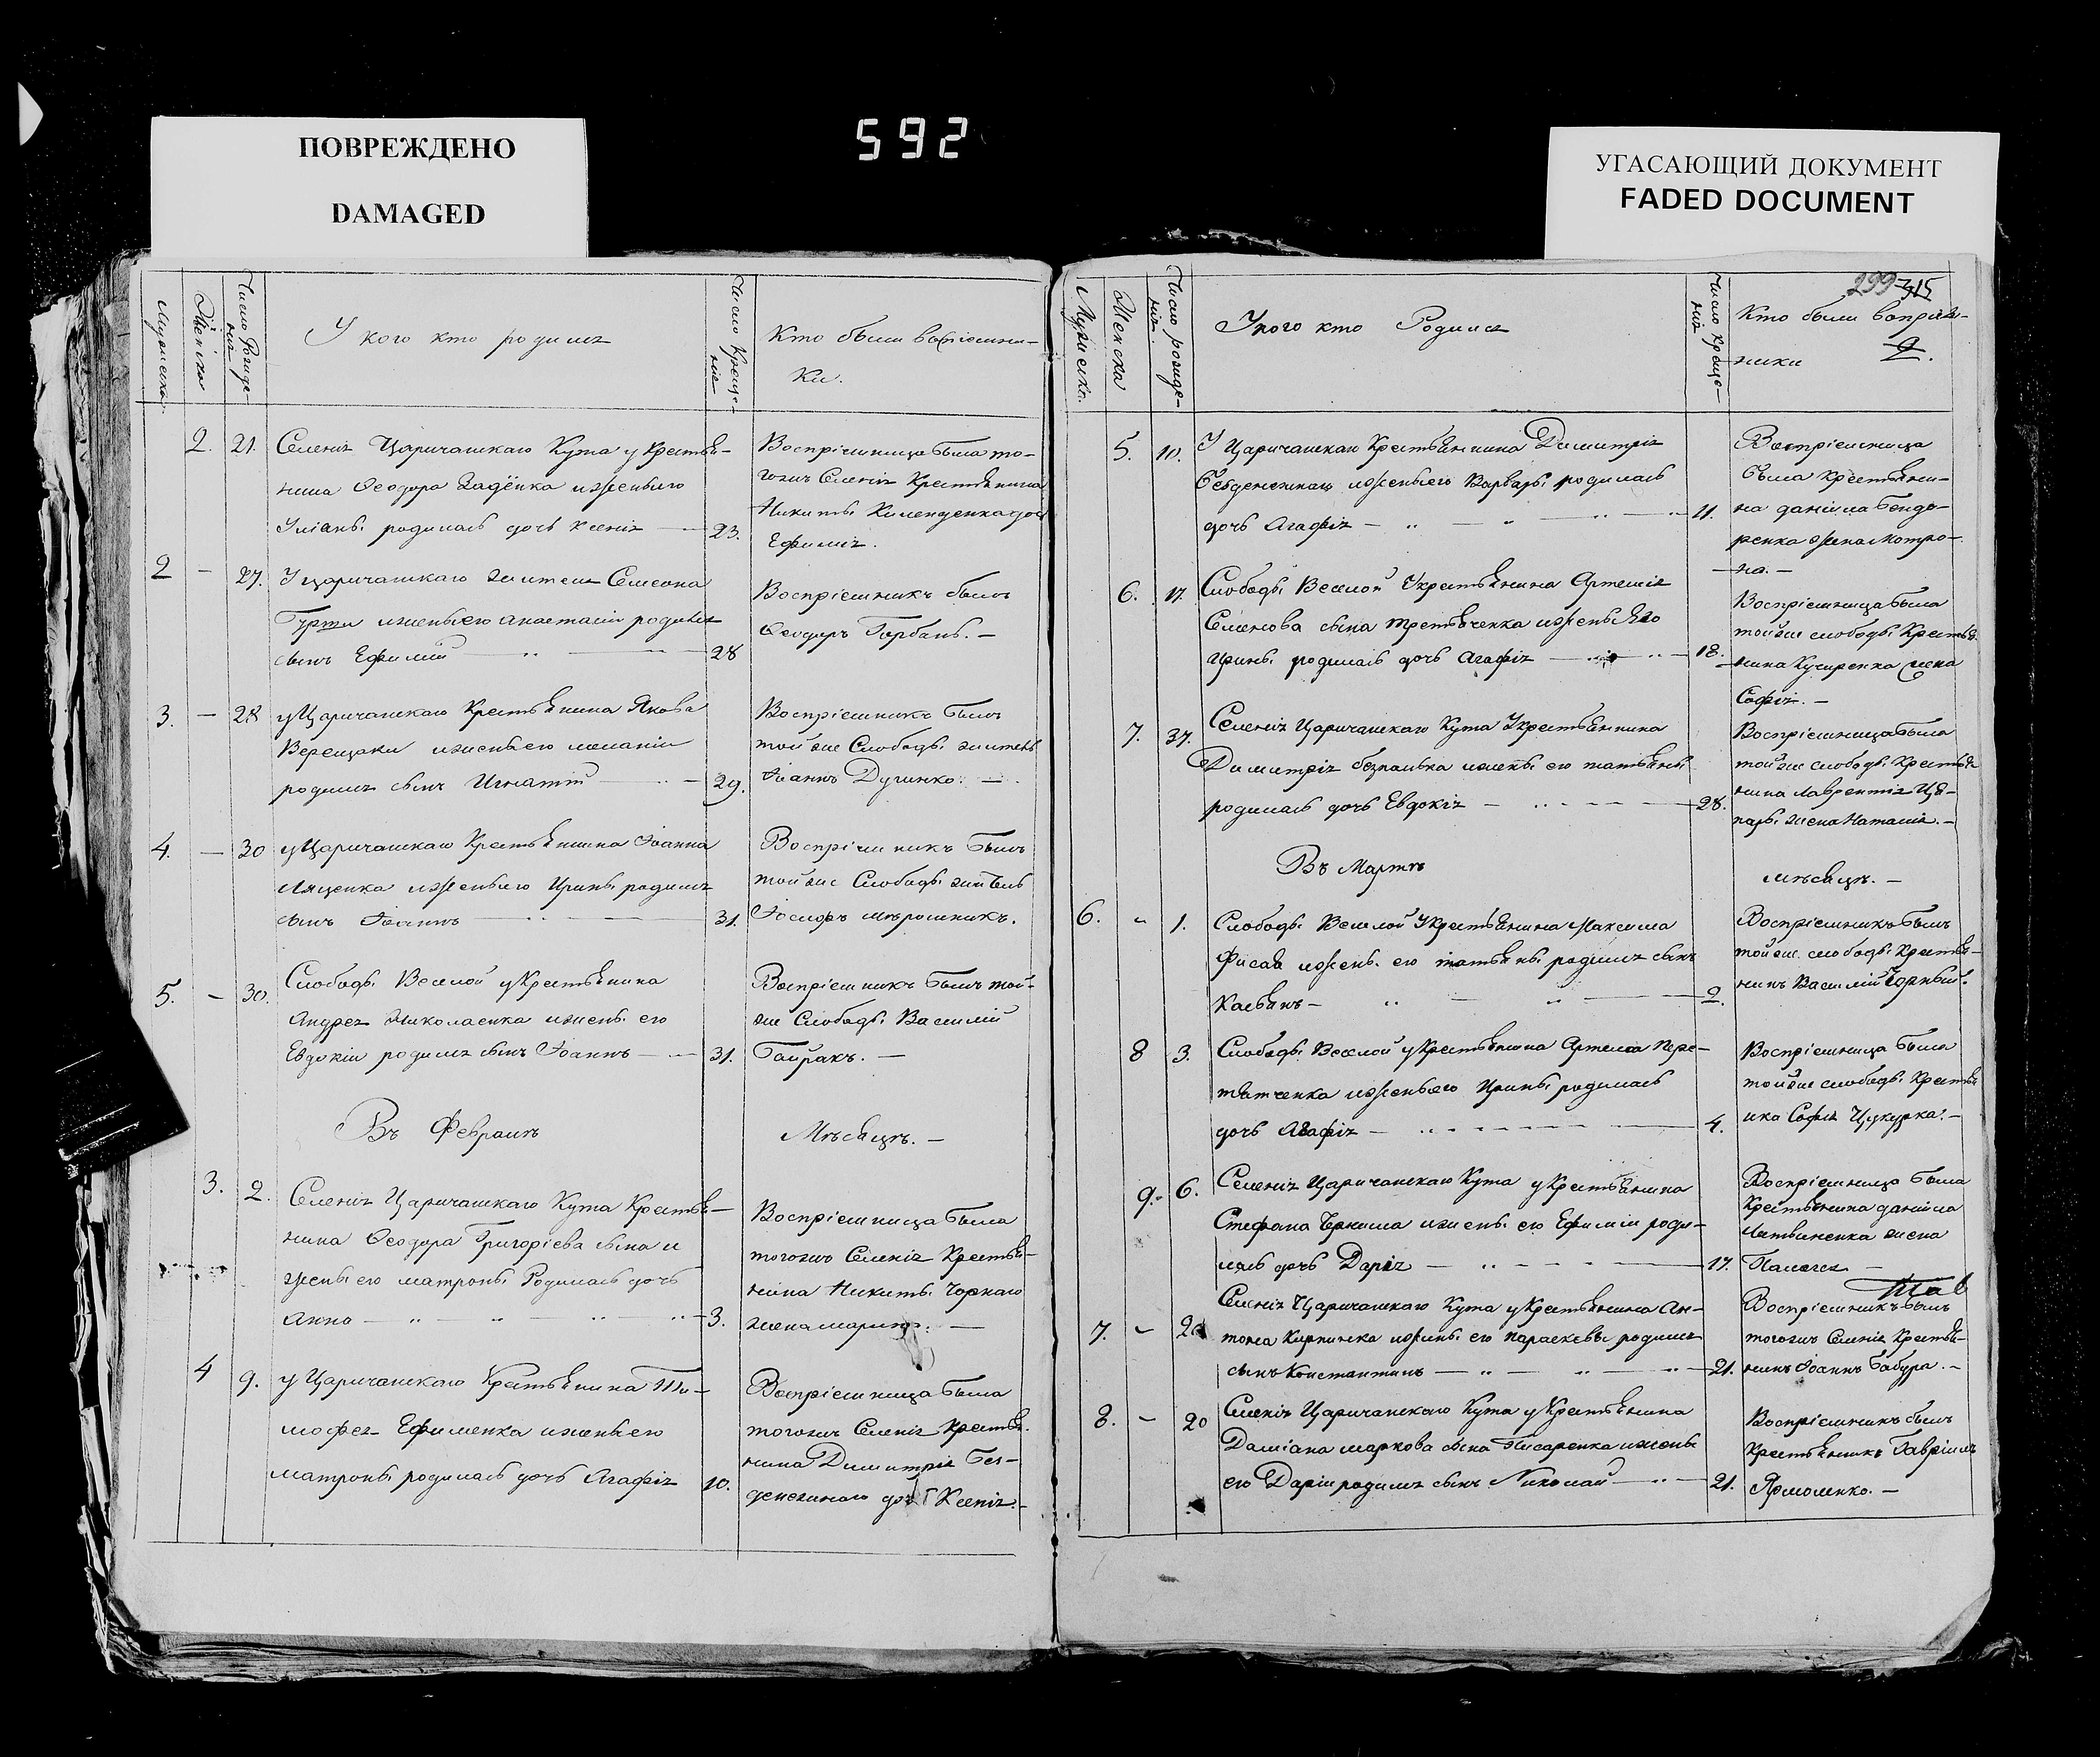 ПОВРЕЖДЕНО
DAMAGED
592
УГАСАЮЩИЙ ДОКУМЕНТ
FADED DOCUMENT
Мужеска
Женска
Число Рожде-
ния
У кого кто родился
Число Креще-
ние
Кто были восприемни-
ки.
2. 21. Селенія Царичанскаго Кута у Крестья-
нина Ѳеодора Задёнка и жены его
Уліаны родилась дочь Ксенія 23.
Воспріемница была то-
гожъ Селенія Крестьянина
Никиты дочь
Ефимія.
2 - 27. У царичанскаго жителя Симеона
Гурти и жены его Анастасіи родился
сынъ Ефимій 28
Воспріемникъ былъ
Ѳеодоръ Горбань. -
3. - 28 у Царичанскаго Крестьянина Якова
Верещаки и жены его Меланіи
родился сынъ Игнатій 29.
Воспріемникъ былъ
той же Слободы житель
Іоаннъ Дученко. -
4. - 30 у Царичанскаго Крестьянина Іоанна
Ляценка и жены его Ирины родился
сынъ Іоаннъ 31.
Воспріемникъ былъ
той же Слободы житель
Іосифъ Мѣрошникъ.
5. - 30. Слободы Веселой у Крестьянина
Андрея Николаенка и жены его
Евдокіи родился сынъ Іоаннъ 31.
Воспріемникъ былъ той-
же Слободы Василій
Гайракъ. -
Въ Февралѣ Мѣсяцѣ. -
3. 2. Селенія Царичанскаго Кута Крестья-
нина Ѳеодора Григоріева сына и
жены его Матроны Родилась дочь
Анна 3.
Воспріемница была
тогожъ Селенія Крестья-
нина Никиты Чорнаго
жена Марина. -
4 9. у Царичанскаго Крестьянина Ти-
мофея Ефименка и жены его
Матроны родилась дочь Агафія 10.
Воспріемница была
тогожъ Селенія Крестья-
нина Димитрія Без-
денежнаго дочь Ксенія. -
299 315
Мужеска.
Женска
Число рожде-
нія
У кого кто Родился
Число креще-
нія
Кто были воспріем-
ники 9.
5. 10. У Царичанскаго Крестьянина Димитрія
и жены его Варвары родилась
дочь Агафія 11.
Воспріемница
была Крестьяни-
на Даніила Бондо-
ренка жена Мотро-
на. -
6. 17. Слободы Веселой У крестьянина Артемія
Семенова сына Третьяченка и жены его
Ирины родилась дочь Агафія 18.
Воспріемница была
той же слободы Крестья-
нина Кучиренка жена
Софія. -
7. 27. Селенія Царичанскаго Кута У крестьянина
Димитрія безпалька и жены его Татьяны
родилась дочь Евдокія 28.
Воспріемница была
той же слободы Крестья-
нина Лаврентія Ця-
пары жена Наталія. -
Въ Мартѣ мѣсяцѣ. -
6. - 1. Слободы Веселой У Крестьянина Максима
Фисая и жены его Татьяны родился сынъ
Касьянъ 2.
Воспріемникъ былъ
той же слободы Крестья-
нинъ Василій Чорный.
8 3. Слободы Веселой у Крестьянина Артема Пере-
тятченка и жены его Ирины родилась
дочь Агафія 4.
Воспріемница была
той же слободы Крестья-
нка Софія Цукурка. -
9. 6. Селенія Царичанскаго Кута у Крестьянина
Стефана и жены его Ефиміи роди-
лась дочь Дарія 17.
Воспріемница была
Крестьянина Даніила
Литвиненка жена
Палагея -
7. - 20 Селенія Царичанскаго Кута у Крестьянина Ан-
тона Кирпинка и жены его Параскевы родился
сынъ Константинъ 21.
Воспріемникъ былъ
тогожъ Селенія Крестья-
нинъ Іоаннъ Бабура. -
8. - 20 Селенія Царичанскаго Кута у Крестьянина
Даміана Маркова сына Писаренка и жены
его Даріи родился сынъ Николай 21.
Воспріемникъ былъ
Крестьянинъ Гавріилъ
Ярмоленко. -